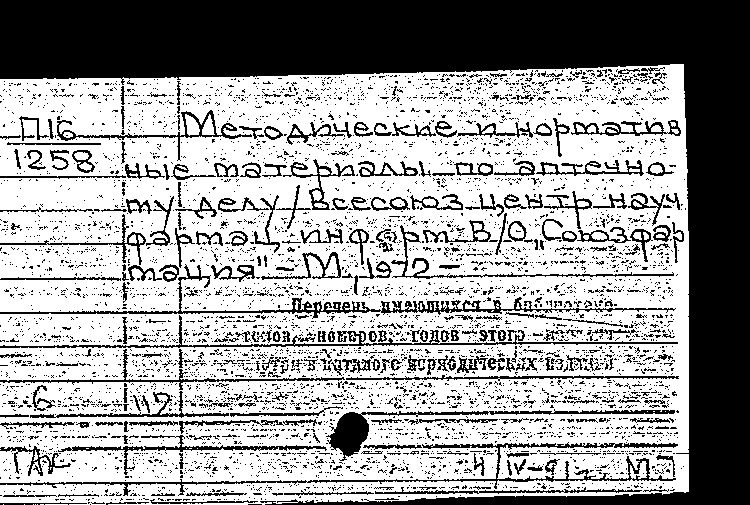 П16
1258
Методические и норматив
ные материалы по аптечно-
му делу / Всесоюз. центр науч.
фармац. информ. В/О „Союзфар
мация" – М., 1972 –
Перечень имеющихся в библиотеке
томов, номеров, годов этого
смотри в каталоге периодических изданий
6
117
4/IV-91 г.